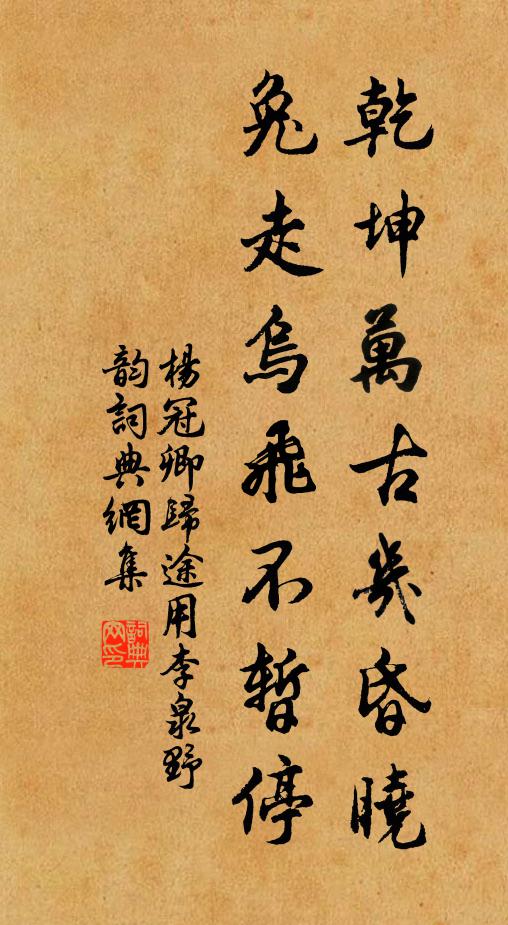 乾坤萬古幾昏曉
兔走烏飛不暫停
楊冠卿歸途用李泉野
韵詞典網集
詞典網印